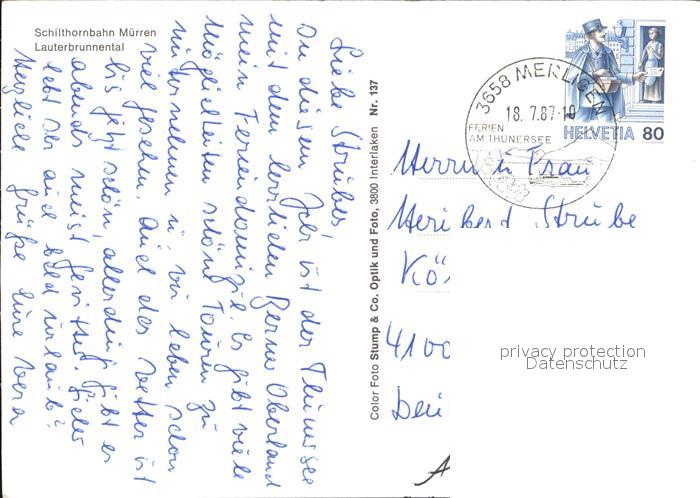 Schilthornbahn Mürren
Lauterbrunnental
Liebe Strübes!
In diesem Jahr ist der Thunersee
mit dem herrlichen Berner Oberland
mein Feriendomizil. Es gibt viele
Möglichkeiten schöne Touren zu
unternehmen u. wir haben schon
viel gesehen. Auch das Wetter ist
bis jetzt schön, allerdings gibt es
abends meist Gewitter.
lebt Ihr auch bald Urlaub?
Herzliche Grüße Eure Vera
Color Foto Stump & Co. Optik und Foto, 3800 Interlaken Nr. 137
3658 MERLIGEN
18.7.87-10
FERIEN
AM THUNERSEE
HELVETIA 80
Herrn u Frau
Heribert Strübe
Kö
4100
privacy protection
Datenschutz